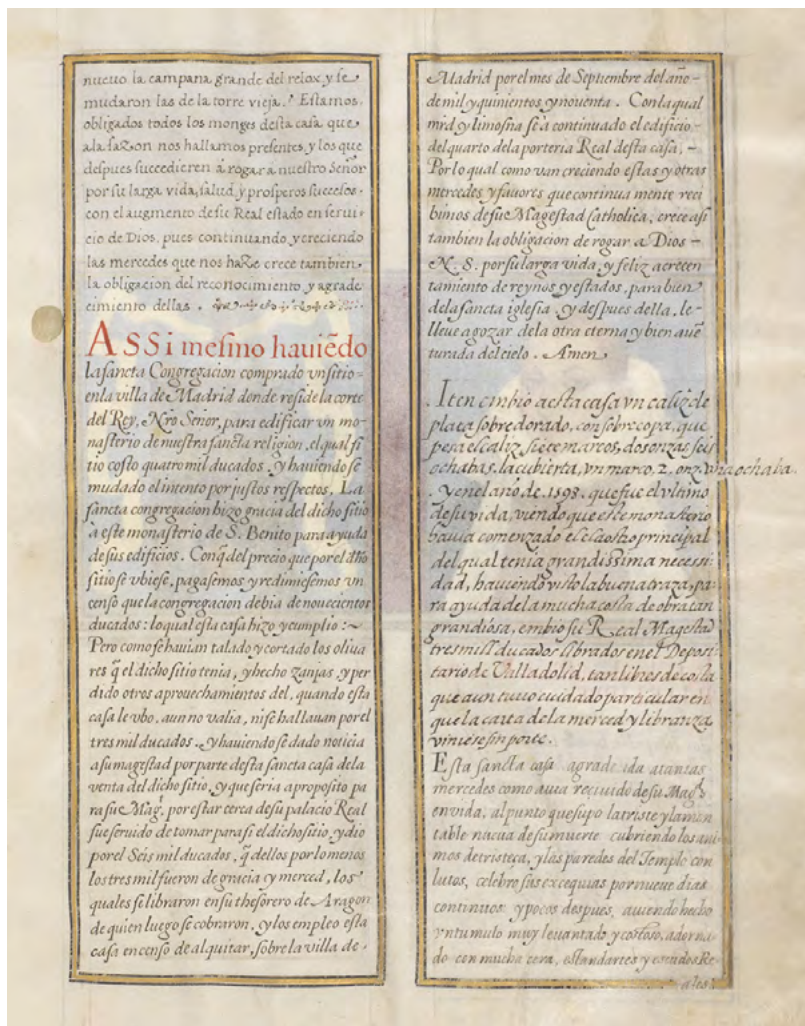 nueuo la campana grande del relox y se
mudaron las de la torre vieja. Estamos
obligados todos los monges desta casa que
ala sazon nos hallamos presentes, y los que
despues succedieren á rogar a nuestro Señor
por su larga vida, salud, y prosperos successos
con el augmento de su Real estado en serui-
cio de Dios, pues continuando y creciendo
las mercedes que nos haze crece tambien
la obligacion del reconocimiento y agrade
cimiento dellas.
ASSi mesmo hauiẽdo
la sancta Congregacion comprado vn sitio
en la villa de Madrid donde reside la corte
del Rey, Nr̃o Señor, para edificar vn mo-
nasterio de nuestra sancta religion, el qual si
tio costo quatro mil ducados. y hauiendo se
mudado el intento por justos respectos. La
sancta congregacion hizo gracia del dicho sitio
à este monasterio de S. Benito para ayuda
de sus edificios. Conq̃ del precio que por el dho
sitio se vbiese, pagasemos y redimiesemos vn
censo que la congregacion debia de nouecientos
ducados: lo qual esta casa hizo y cumplio:~
Pero como se hauian talado y cortado los oliua
res q̃ el dicho sitio tenia, y hecho zanjas, y per
dido otros aprouechamientos del, quando esta
casa le vbo, aun no valia, ni se hallauan por el
tres mil ducados. y hauiendo se dado noticia
a su magestad por parte desta sancta casa de la
venta del dicho sitio, y que seria aproposito pa
ra su Mag.d, por estar cerca de su palacio Real
fue seruido de tomar para si el dicho sitio, y dio
por el Seis mil ducados, q̃ dellos por lo menos
los tres mil fueron de gracia y merced, los
quales se libraron en su thesorero de Aragon
de quien luego se cobraron, y los empleo esta
casa en censo de al quitar, sobre la villa de
Madrid por el mes de Septiembre del año
de mil y quinientos y nouenta. Con la qual
mrd y limosna se à continuado el edificio
del quarto de la porteria Real desta casa.
Por lo qual como van creciendo estas y otras
mercedes y fauores que continua mente reci
bimos de su Magestad Catholica, crece asi
tambien la obligacion de rogar a Dios
N. S. por su larga vida, y feliz acrecen
tamiento de reynos y estados, para bien
de la sancta iglesia, y despues della, le
lleue a gozar de la otra eterna y bien auẽ
turada del cielo. Amen
Iten embio a esta casa vn caliz de
plata sobredorado, con sobrecopa, que
pesa el caliz, siete marcos, dos onzas seis
ochabas, la cubierta, vn marco, 2, onz. vna ochaba.
Y en el año de .1598. que fue el vltimo
de su vida, viendo que este monasterio
hauia comenzado el claostro principal
del qual tenia grandissima necessi-
dad, hauiendo visto la buena traza, pa-
ra ayuda de la mucha costa de obra tan
grandiosa, embio su Real Magestad
tres mill ducados librados en el Deposi-
tario de Valladolid, tan libres de costa
que aun tuuo cuidado particular en
que la carta de la merced y libranza
viniese sin porte.
Esta sancta casa agradecida a tantas
mercedes como auia reciuido de su Magd
en vida, al punto que supo la triste y lamen
table nueua de su muerte cubriendo los ani
mos de tristeça, y las paredes del Templo con
lutos, celebro sus excequias por nueue dias
continuos: y pocos despues, auiendo hecho
vn tumulo muy leuantado y costoso, adorna-
do con mucha cera, estandartes y escudos Re
ales